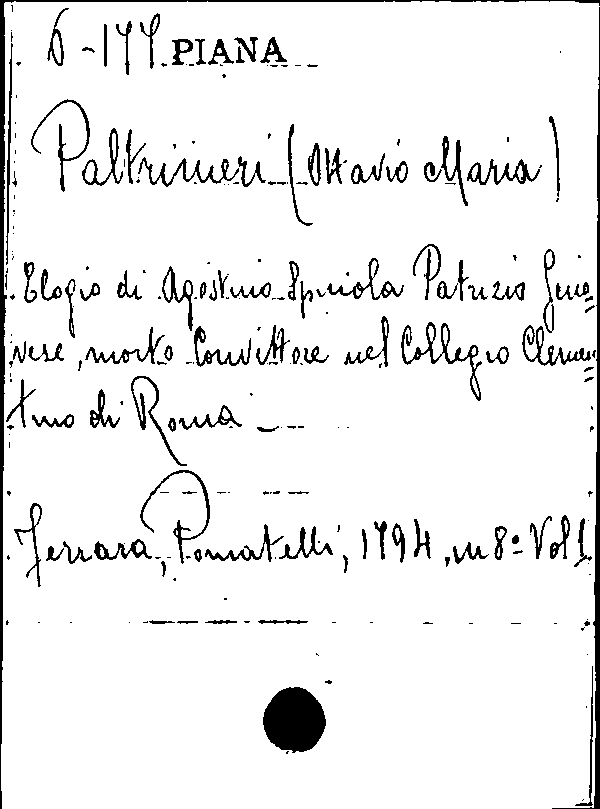 6-177 PIANA
Paltrinieri (Ottavio Maria)
Elogio di Agostino Spinola Patrizio Geno=
vese, morto Convittore nel Collegio Clemen=
tino di Roma -
Ferrara, Pomatelli, 1794, in 8º Vol 1